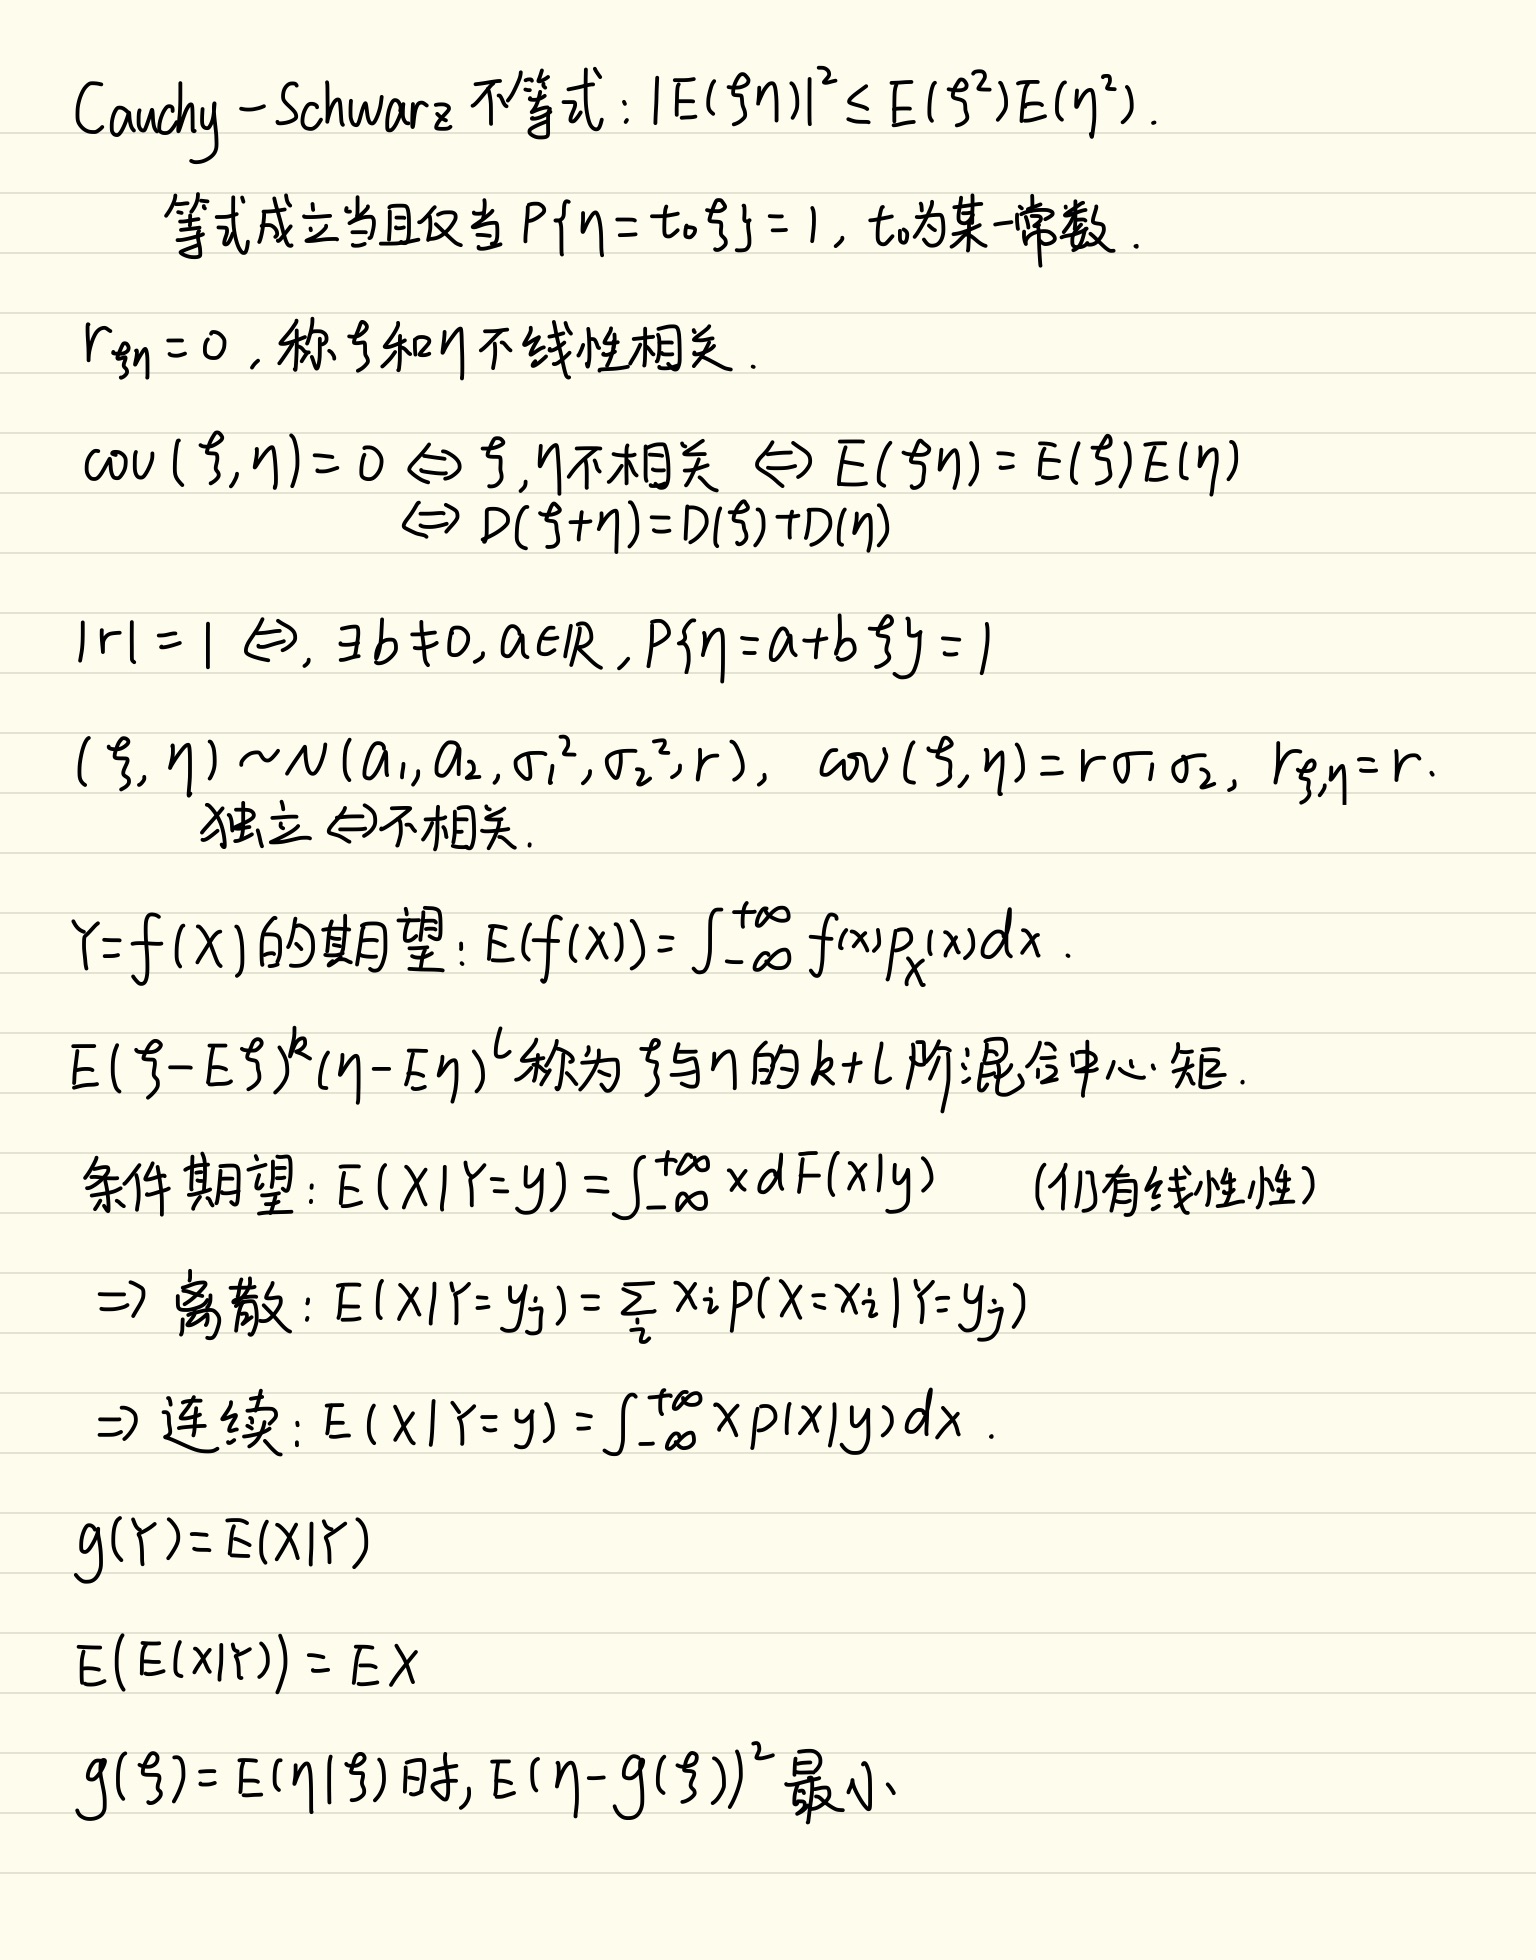 Cauchy-Schwarz 不等式: |E(ξη)|² ≤ E(ξ²)E(η²).
等式成立当且仅当 P{η=t₀ξ}=1, t₀为某一常数.
r_ξη = 0, 称ξ和η不线性相关.
cov(ξ,η)=0 ⇔ ξ,η不相关 ⇔ E(ξη)=E(ξ)E(η)
⇔ D(ξ+η)=D(ξ)+D(η)
|r|=1 ⇔, ∃b≠0, a∈ℝ, P{η=a+bξ}=1
(ξ,η)~N(a₁,a₂,σ₁²,σ₂²,r), cov(ξ,η)=rσ₁σ₂, r_ξ,η=r.
独立⇔不相关.
Y=f(X)的期望: E(f(X))=∫_{-∞}^{+∞} f(x)p_X(x)dx.
E(ξ-Eξ)^k(η-Eη)^l 称为ξ与η的k+l阶混合中心矩.
条件期望: E(X|Y=y)=∫_{-∞}^{+∞} xdF(x|y) (仍有线性性)
⇒ 离散: E(X|Y=y_j)=∑_i x_i p(X=x_i|Y=y_j)
⇒ 连续: E(X|Y=y)=∫_{-∞}^{+∞} xp(x|y)dx.
g(Y)=E(X|Y)
E(E(X|Y))=EX
g(ξ)=E(η|ξ)时, E(η-g(ξ))² 最小